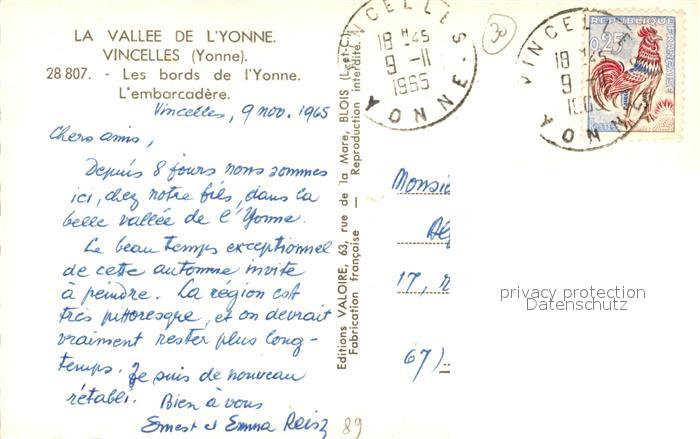 LA VALLEE DE L'YONNE.
VINCELLES (Yonne).
28 807. - Les bords de l'Yonne.
L'embarcadère.
Vincelles, 9 nov. 1965
Chers amis,
Depuis 8 jours nous sommes
ici, chez notre fils, dans la
belle vallée de l'Yonne.
Le beau temps exceptionnel
de cette automne invite
à peindre. La région est
très pittoresque, et on devrait
vraiment rester plus long-
temps. Je suis de nouveau
rétabli. Bien à vous
Ernest et Emma Reisz
89
Editions VALOIRE, 63, rue de la Mare, BLOIS (L.-et-C.)
Fabrication française - Reproduction interdite.
VINCELLES
18 H 45
9 -11
1965
YONNE
30
VINCELLES
18 H 45
9 -
1965
YONNE
REPUBLIQUE
FRANÇAISE
0,25
POSTES
Monsie
17, r
67)
privacy protection
Datenschutz